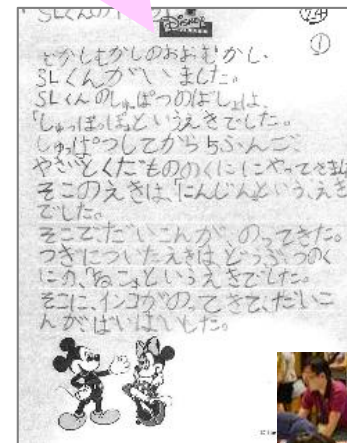 SLくんの
24
①
Disney
むかしむかしのおおむかし、
SLくんがいました。
SLくんのしゅっぱつのばしょは、
「しゅっぽっぽ」というえきでした。
しゅっぱつしてから5ふんご、
やさいとくだもののくににやってきま
そこのえきは、「にんじん」という、えき
でした。
そこで、だいこんが、のってきた。
つぎについたえきは、どうぶつのく
にの、「ねこ」というえきでした。
そこに、インコがのってきて、だいこ
んがばいばいした。